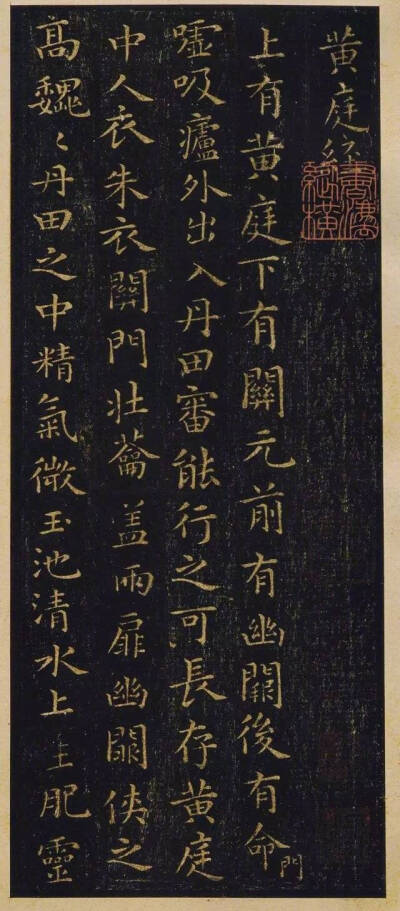 黃庭經
上有黃庭下有關元前有幽闕後有命門
嘘吸廬外出入丹田審能行之可長存黃庭
中人衣朱衣關門壯蘥盖兩扉幽闕俠之
高巍〻丹田之中精氣微玉池清水上生肥靈